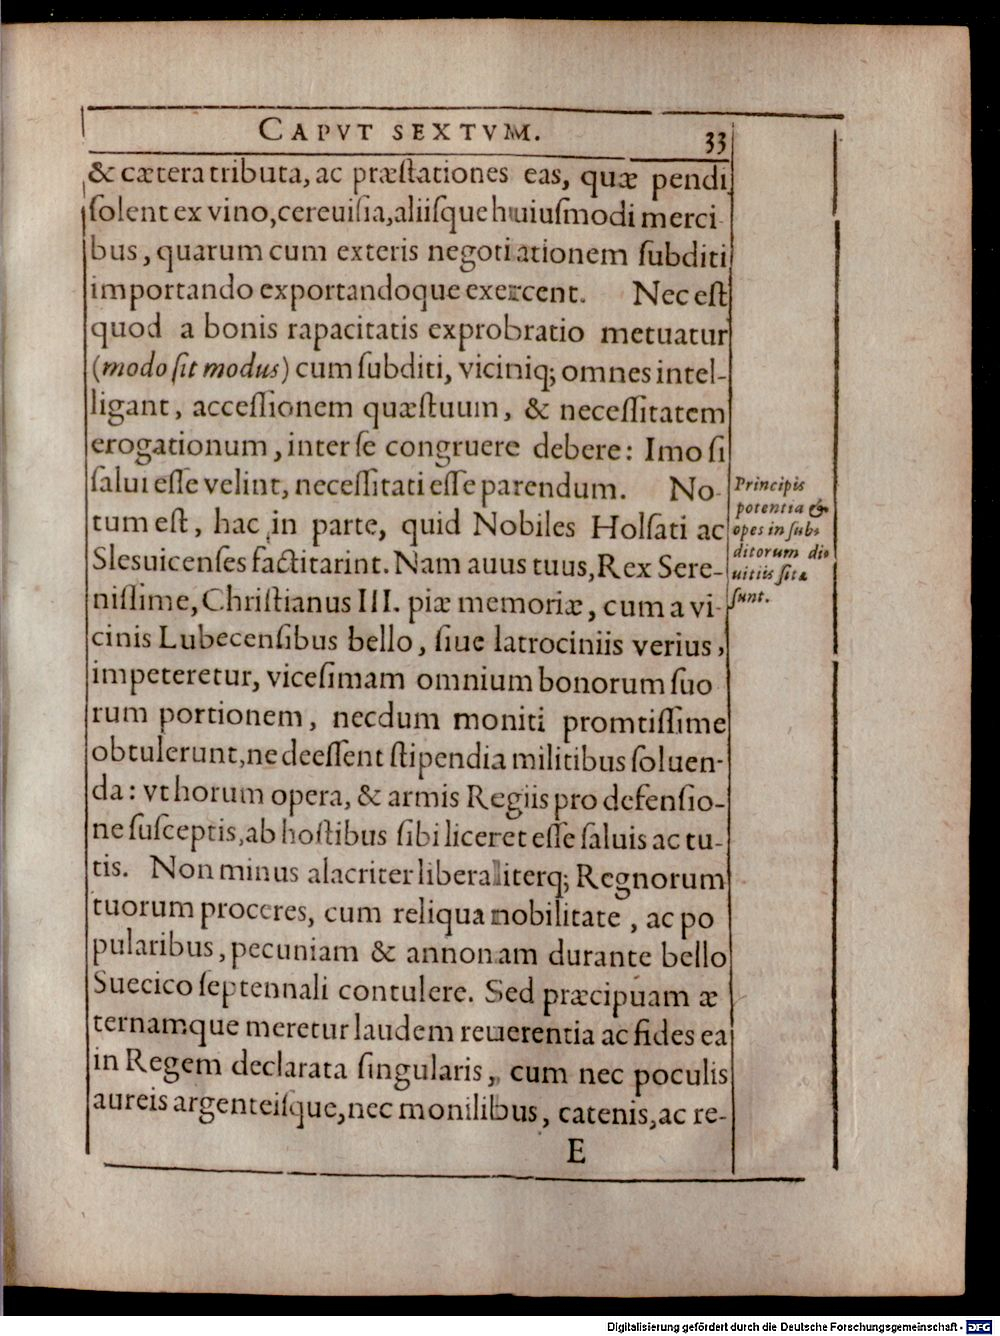 CAPVT SEXTVM.
33
& cætera tributa, ac præſtationes eas, quæ pendi
ſolent ex vino, cereuiſia, aliiſque huiuſmodi merci
bus, quarum cum exteris negotiationem ſubditi
importando exportandoque exercent. Nec eſt
quod a bonis rapacitatis exprobratio metuatur
(modo ſit modus) cum ſubditi, viciniq; omnes intel-
ligant, acceſſionem quæſtuum, & neceſſitatem
erogationum, inter ſe congruere debere: Imo ſi
ſalui eſſe velint, neceſſitati eſſe parendum. No-
tum eſt, hac in parte, quid Nobiles Holſati ac
Slesuicenſes factitarint. Nam auus tuus, Rex Sere-
niſſime, Chriſtianus III. piæ memoriæ, cum a vi-
cinis Lubecenſibus bello, ſiue latrociniis verius,
impeteretur, viceſimam omnium bonorum ſuo
rum portionem, necdum moniti promtiſſime
obtulerunt, ne deeſſent ſtipendia militibus ſoluen-
da: vt horum opera, & armis Regiis pro defenſio-
ne ſuſceptis, ab hoſtibus ſibi liceret eſſe ſaluis ac tu-
tis. Non minus alacriter liberaliterq; Regnorum
tuorum proceres, cum reliqua nobilitate, ac po
pularibus, pecuniam & annonam durante bello
Suecico ſeptennali contulere. Sed præcipuam æ
ternamque meretur laudem reuerentia ac fides ea
in Regem declarata ſingularis, cum nec poculis
aureis argenteiſque, nec monilibus, catenis, ac re-
E
Principis
potentia &
opes in ſub-
ditorum di-
uitiis ſitæ
ſunt.
Digitalisierung gefördert durch die Deutsche Forschungsgemeinschaft - DFG